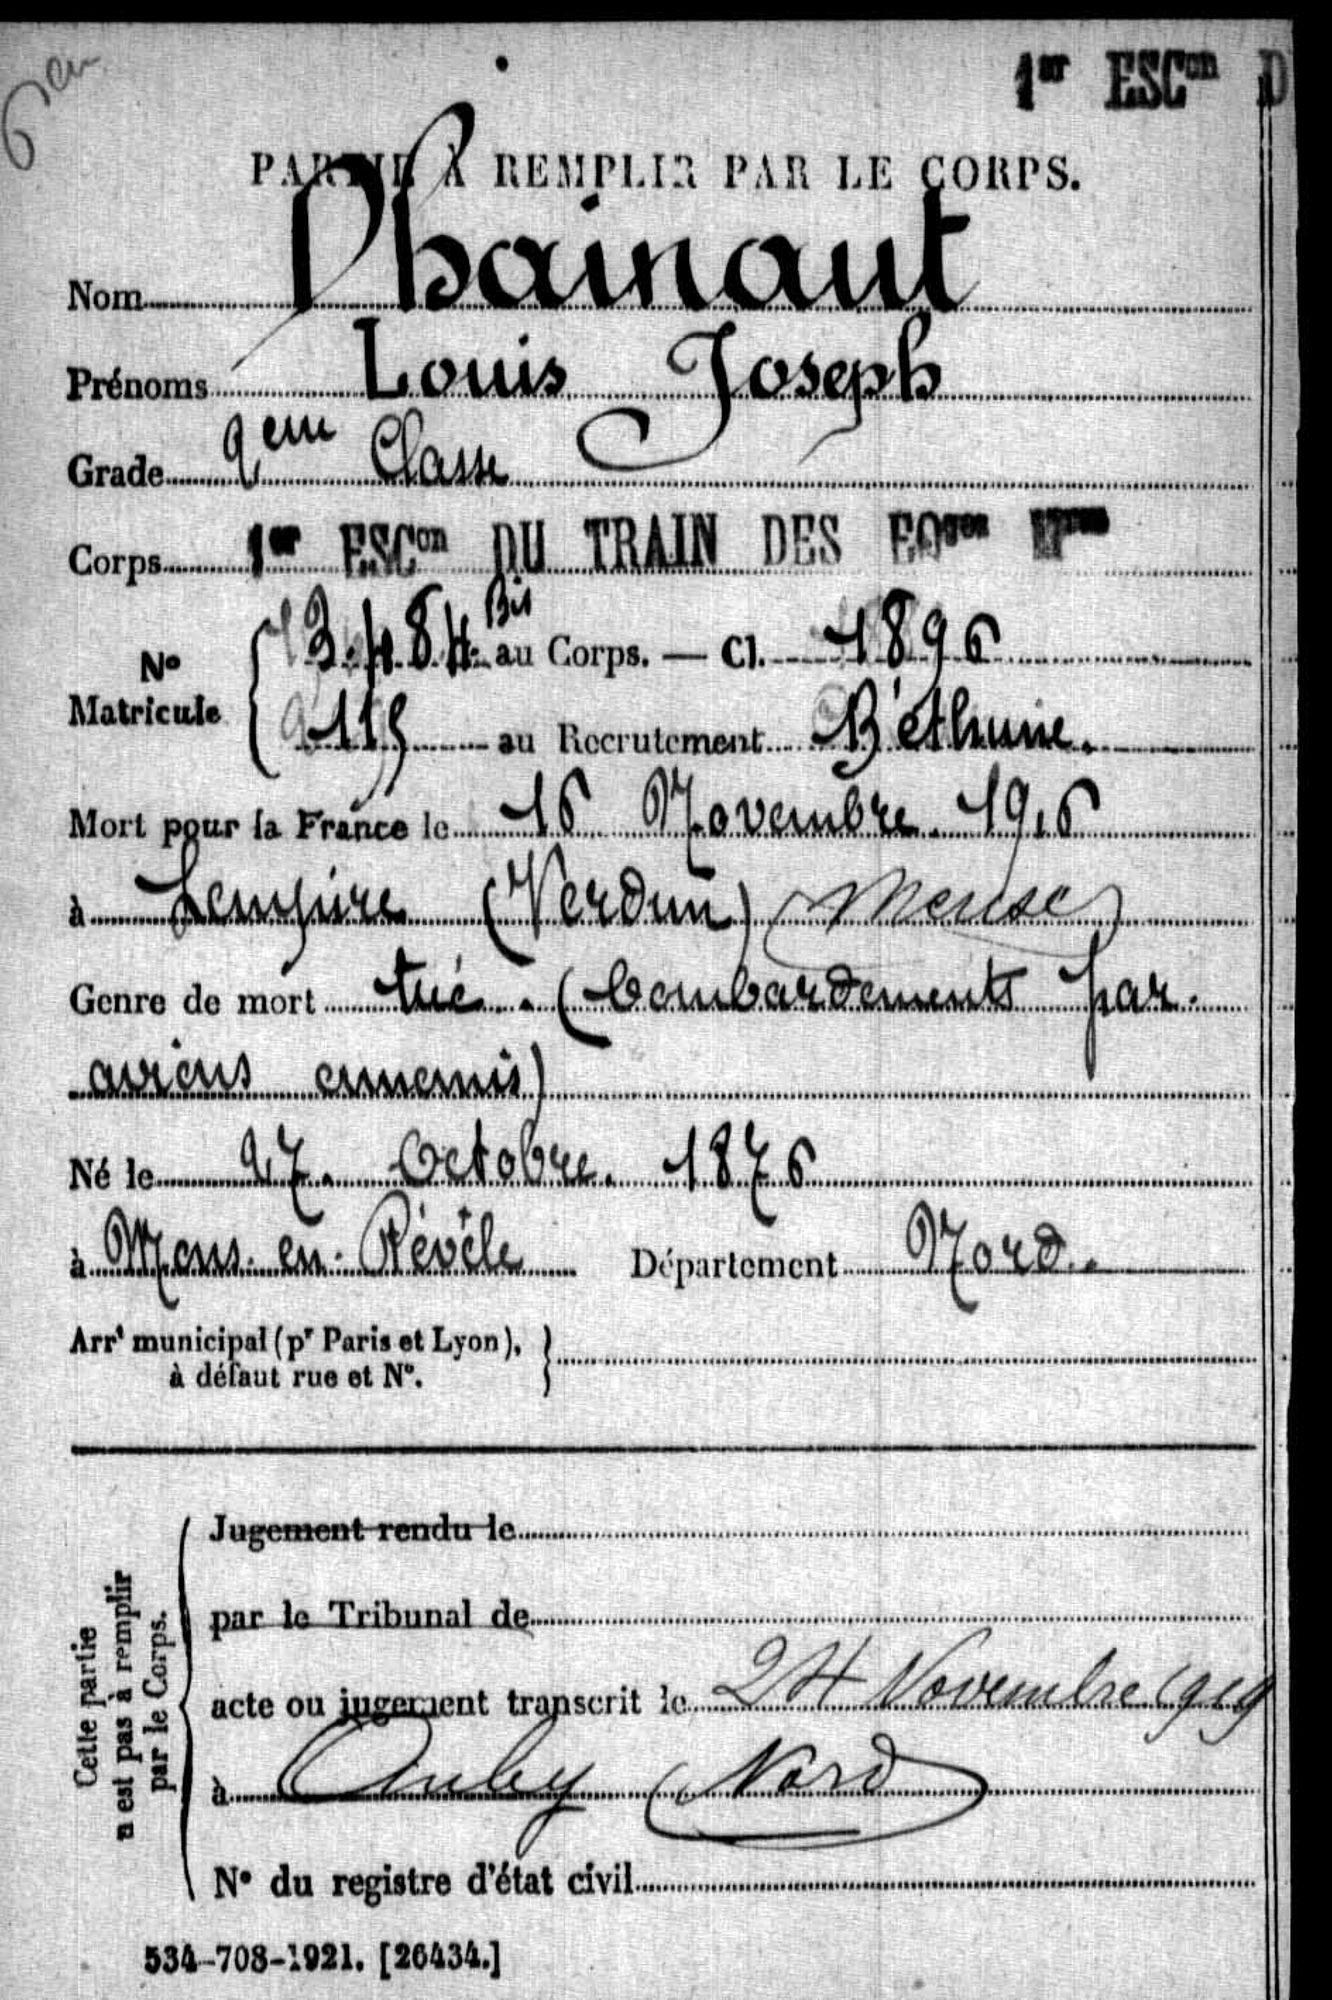 6em
1er ESCon D
PARTIE À REMPLIR PAR LE CORPS.
Nom Dhainaut
Prénoms Louis Joseph
Grade 2eme Classe
Corps 1er ESCon DU TRAIN DES EQges Mres
No Matricule
3.484 Bis au Corps. — Cl. 1896
115 au Recrutement Béthune.
Mort pour la France le 16 Novembre 1916
à Lempire (Verdun) (Meuse)
Genre de mort tué. (bombardements par
avions ennemis)
Né le 27 Octobre 1876
à Mons-en-Pévèle Département Nord.
Arrt municipal (pr Paris et Lyon),
à défaut rue et No.
Cette partie
n'est pas à remplir
par le Corps.
Jugement rendu le
par le Tribunal de
acte ou jugement transcrit le 24 Novembre 1919
à Auby (Nord)
No du registre d'état civil
534-708-1921. [26434.]